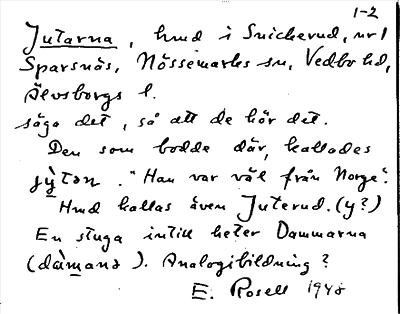 1-2
Jutarna, hmd i Snickerud, nr 1
Sparsnäs, Nössemarks sn, Vedbo hd,
Älvsborgs l.
säga det, så att de hör det.
Den som bodde där, kallades
jỳ̱tən. "Han var väl från Norge".
Hmd kallas även Juterud. (y?)
En stuga intill heter Dammarna
(dàmanə). Analogibildning?
E. Rosell 1948